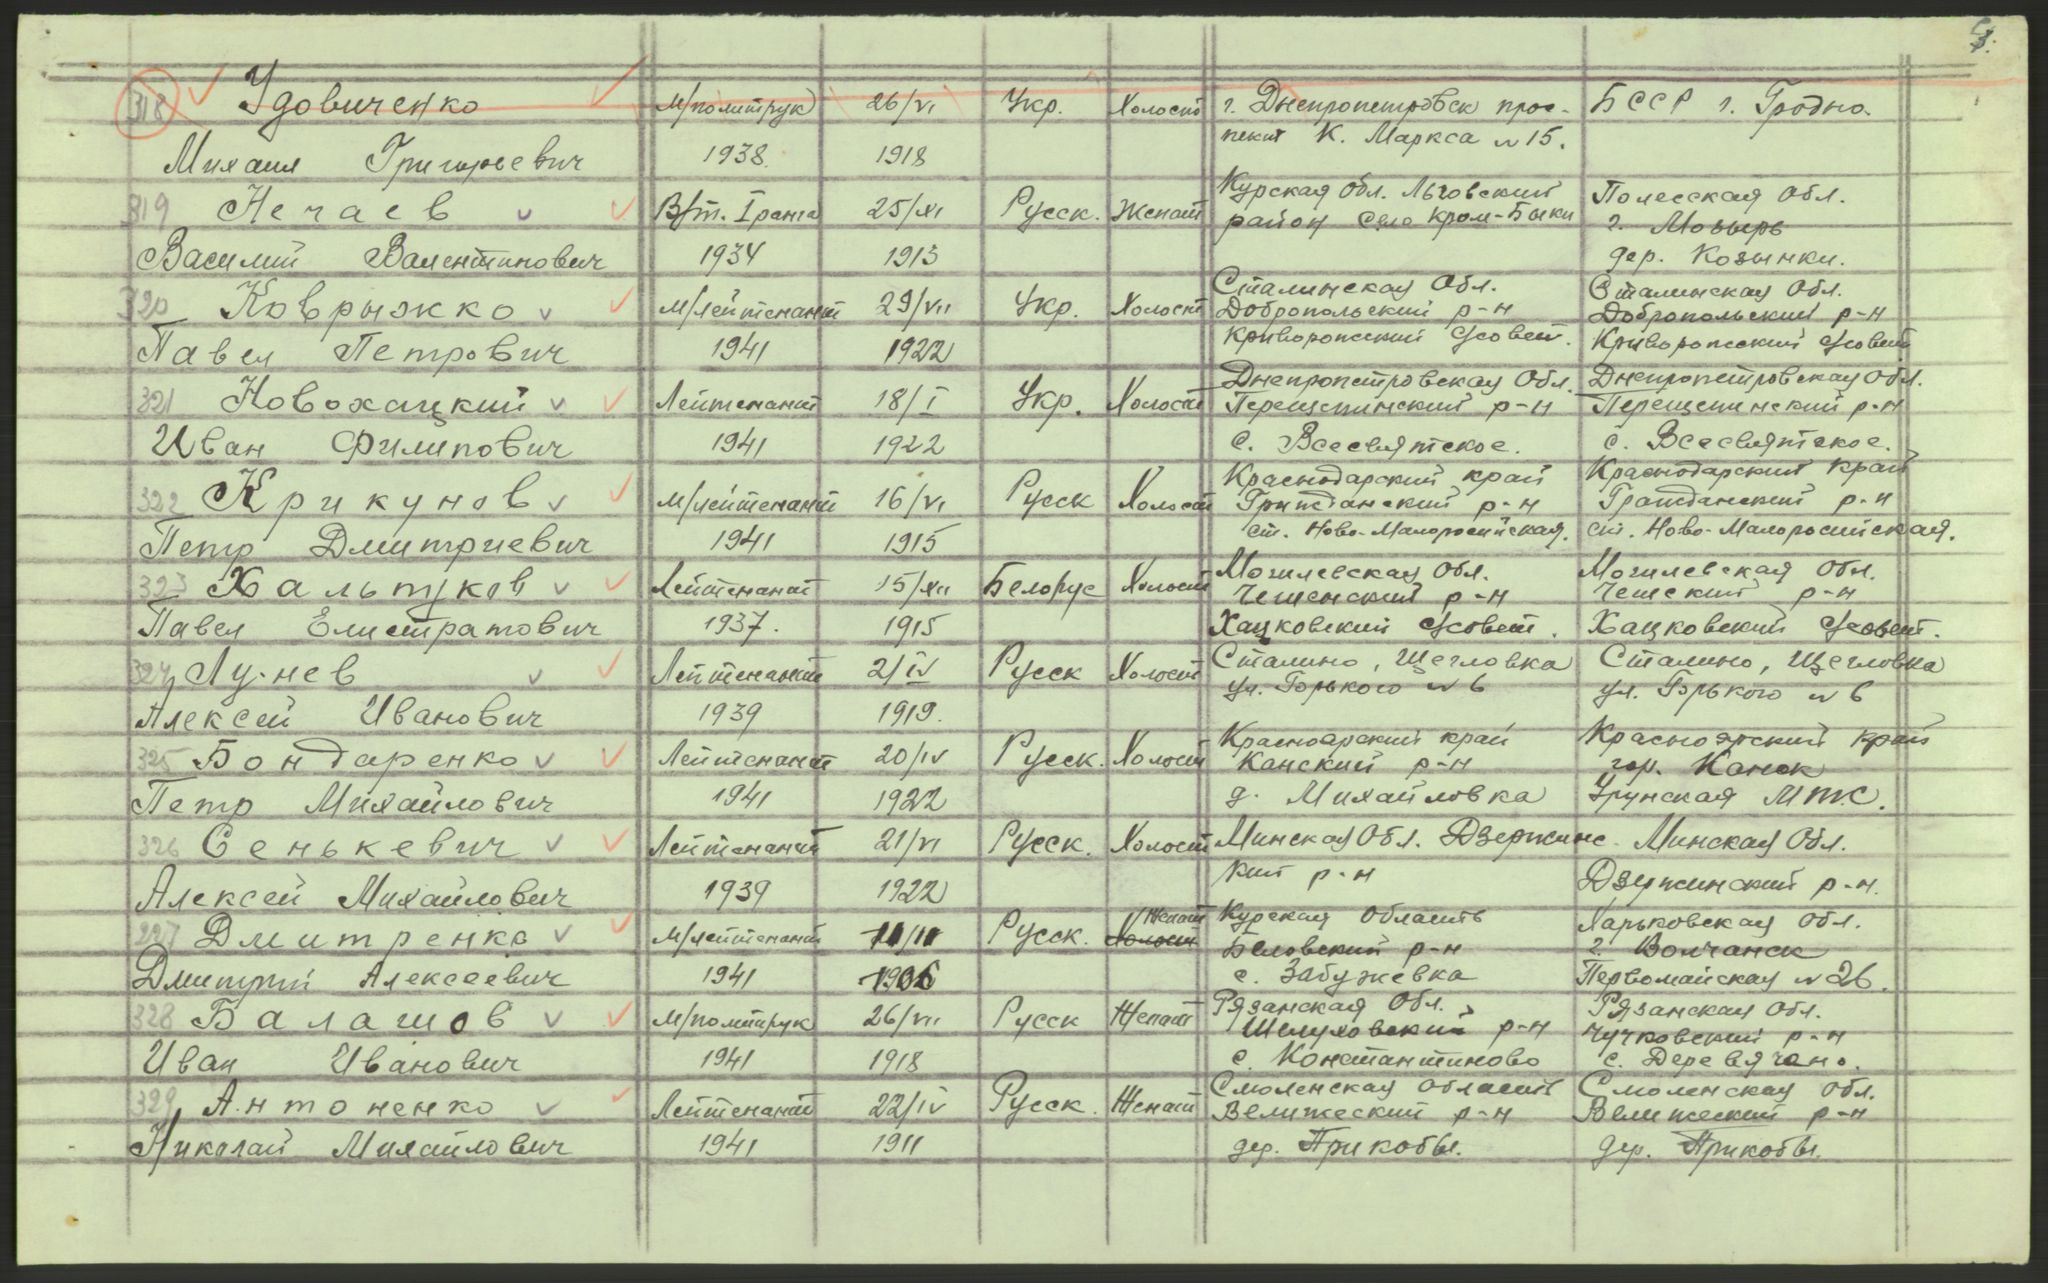 318 Удовиченко м/политрук 26/VI Укр. Холост г. Днепропетровск прос- БССР г. Гродно.
пект К. Маркса №15.
Михаил Григорьевич 1938. 1918
Курская Обл. Льговский Полесская Обл.
319 Нечаев В/т. I ранга 25/XI Русск. Женат район Село Кром-Быки г. Мозырь
Василий Валентинович 1934 1913 дер. Козынки.
Сталинская Обл. Сталинская Обл.
320 Коврыжко М/лейтенант 29/VII Укр. Холост Добропольский р-н Добропольский р-н
Павел Петрович 1941 1922 Криворожский С/совет. Криворожский С/совет
Днепропетровская Обл. Днепропетровская Обл.
321 Новохацкий Лейтенант 18/I Укр. Холост Перещепинский р-н Перещепинский р-н
Иван Филипович 1941 1922 с. Всесвятское. с. Всесвятское.
Краснодарский край Краснодарский край
322 Крикунов М/лейтенант 16/VI Русск Холост Гражданский р-н Гражданский р-н
Петр Дмитриевич 1941 1915 ст. Ново-Малоросийская. ст. Ново-Малоросийская.
Могилевская Обл. Могилевская Обл.
323 Хальпуков Лейтенант 15/XII Белорус Холост Чешенский р-н Чешский р-н
Павел Елистратович 1937. 1915 Хацковский С/совет. Хацковский С/совет.
324 Лунев Лейтенант 2/IV Русск Холост Сталино, Щегловка Сталино, Щегловка
ул. Горького №6 ул. Горького №6
Алексей Иванович 1939 1919.
Красноярский край Красноярский край
325 Бондаренко Лейтенант 20/IV Русск. Холост Канский р-н гор. Канск
Петр Михайлович 1941 1922 д. Михайловка МТС.
326 Сенькевич Лейтенант 21/VI Русск. Холост Минская Обл. Дзержинс- Минская Обл.
кий р-н Дзержинский р-н.
Алексей Михайлович 1939 1922
Женат Курская Область Харьковская Обл.
327 Дмитренко М/лейтенант Русск. Холост Беловский р-н г. Волчанск
Дмитрий Алексеевич 1941 1906 с. Забужевка Первомайская №26.
Рязанская Обл. Рязанская Обл.
328 Балашов М/политрук 26/VII Русск Женат Шелуховский р-н Чучковский р-н
Иван Иванович 1941 1918 с. Константиново с. Деревячено.
Смоленская область Смоленская Обл.
329 Антоненко Лейтенант 22/IV Русск. Женат Велижеский р-н Велижеский р-н
Николай Михайлович 1941 1911 дер. Прикобы. дер. Прикобы.